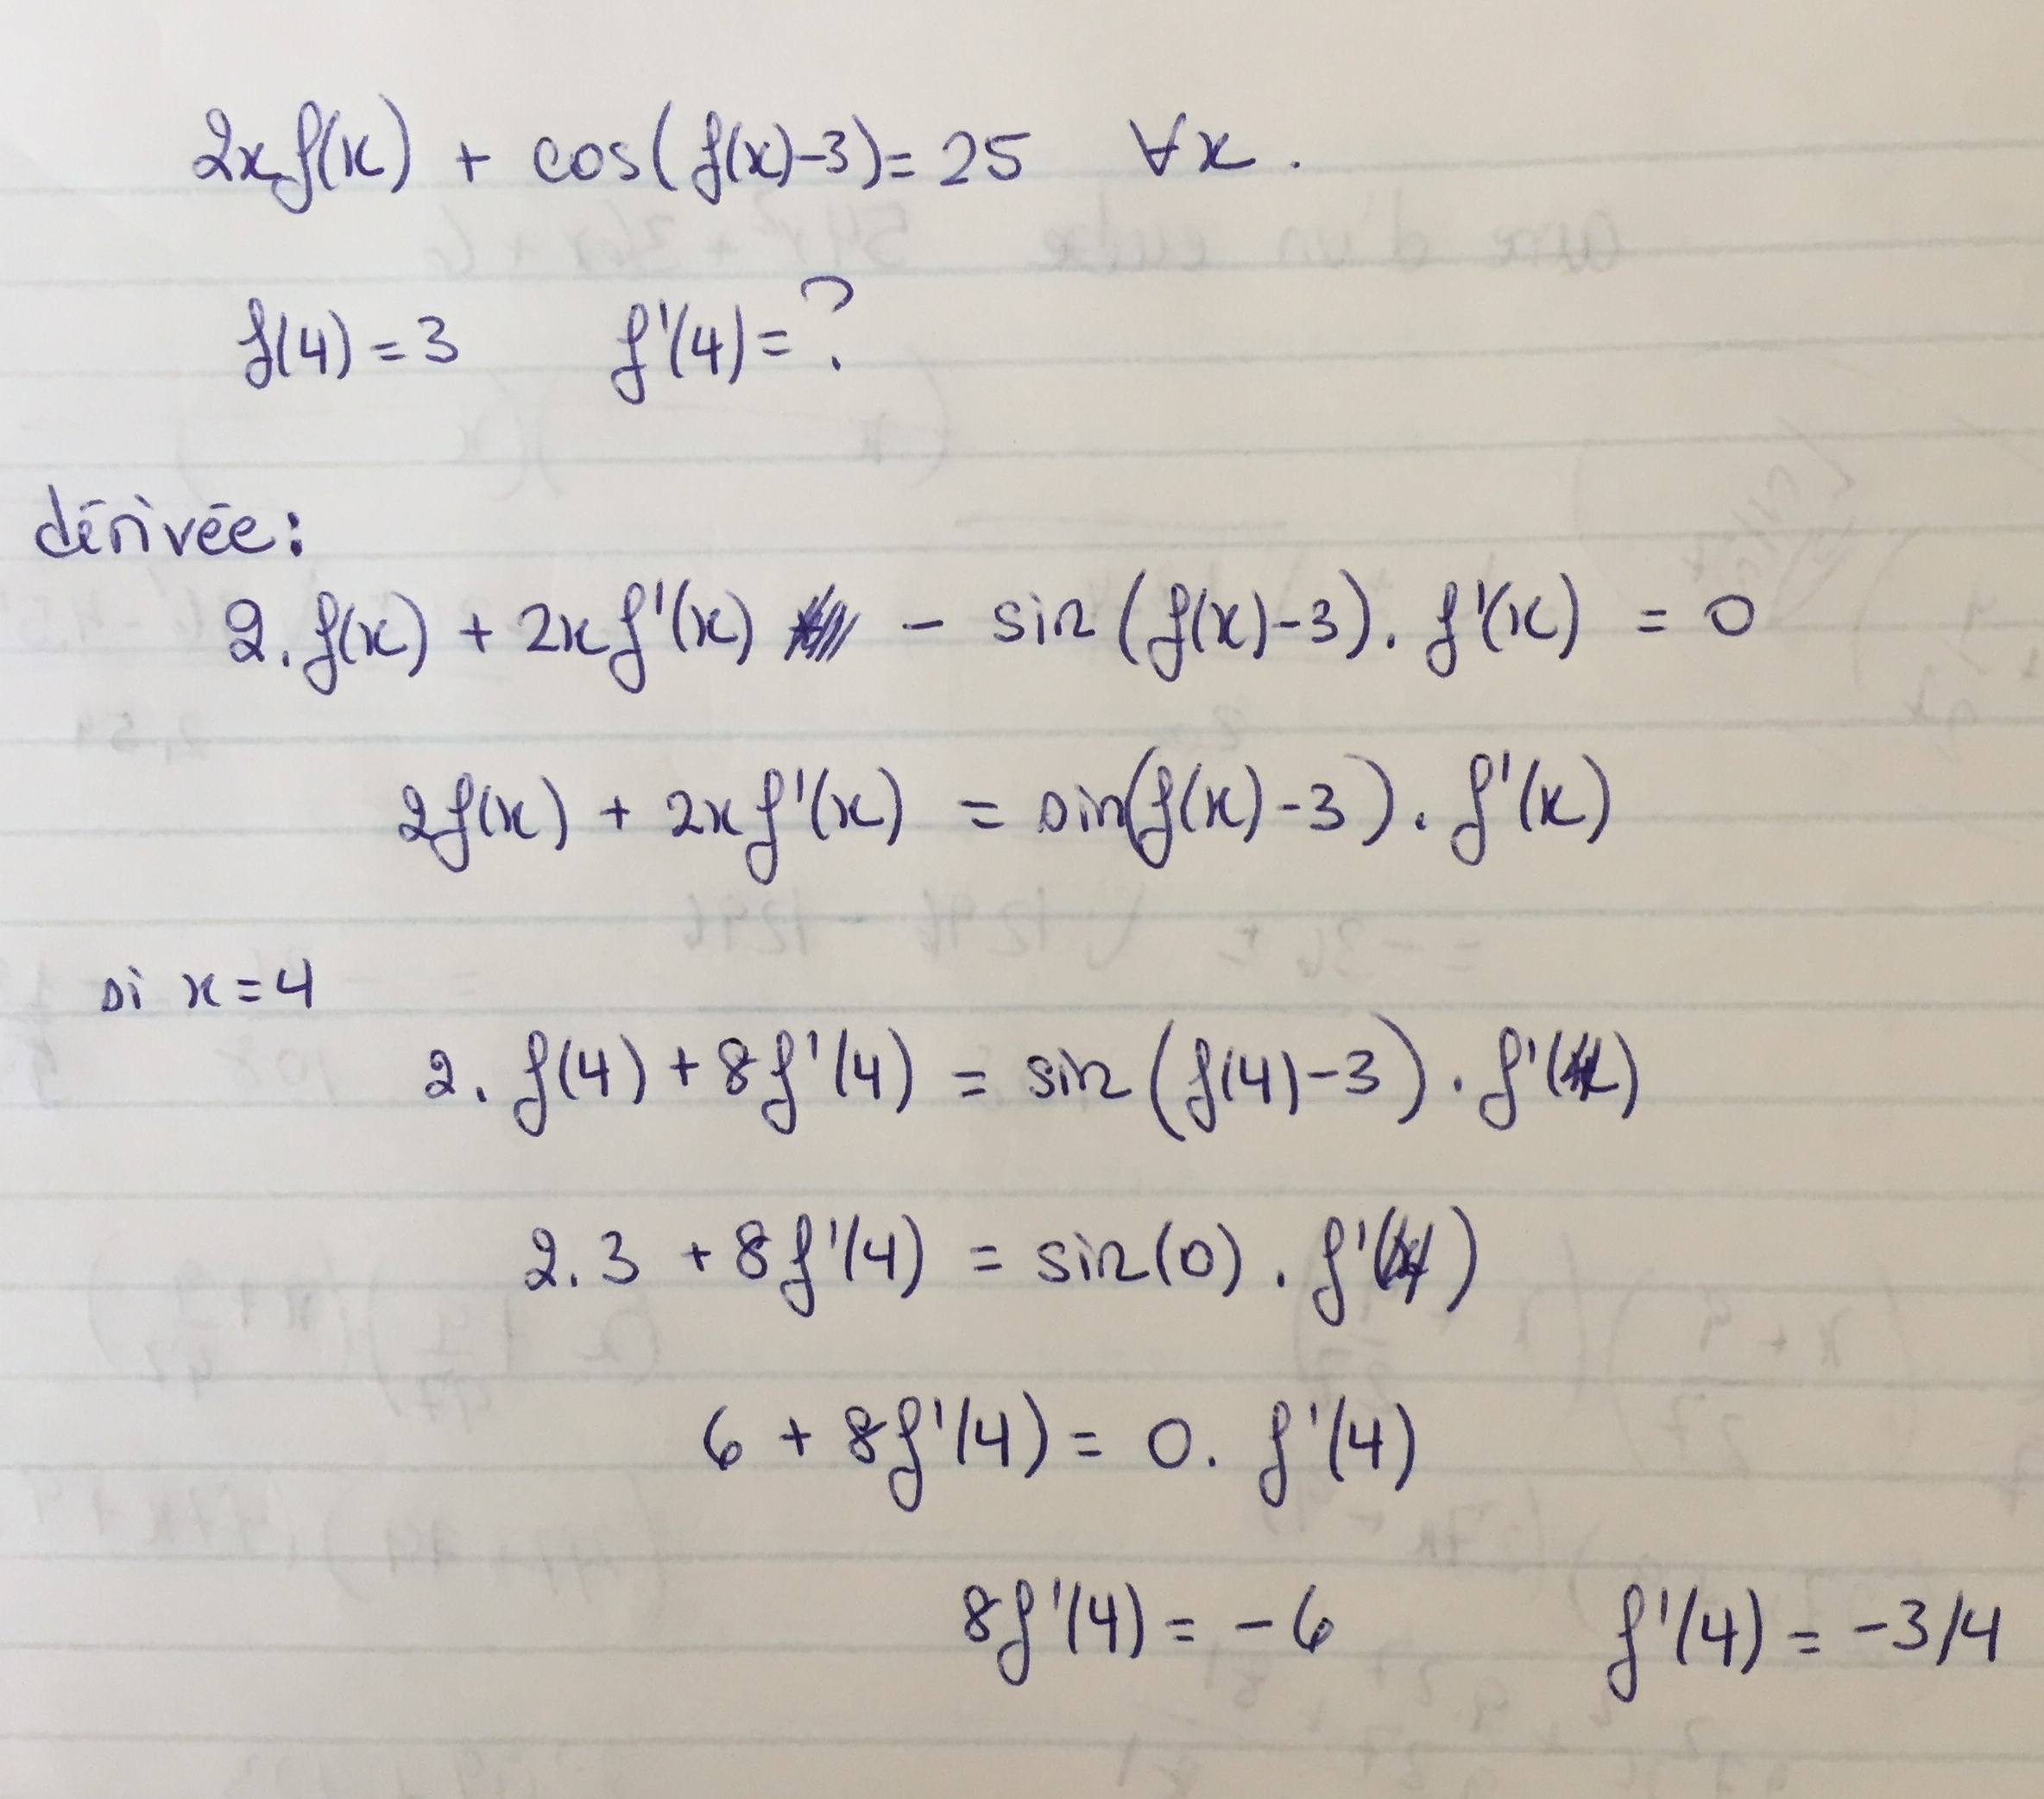 2xf(x) + cos(f(x)-3) = 25 ∀x.
f(4) = 3 f'(4) = ?
dérivée:
2.f(x) + 2xf'(x) - sin(f(x)-3). f'(x) = 0
2f(x) + 2xf'(x) = sin(f(x)-3). f'(x)
si x = 4
2. f(4) + 8f'(4) = sin(f(4)-3). f'(4)
2.3 + 8f'(4) = sin(0). f'(4)
6 + 8f'(4) = 0. f'(4)
8f'(4) = -6 f'(4) = -3/4